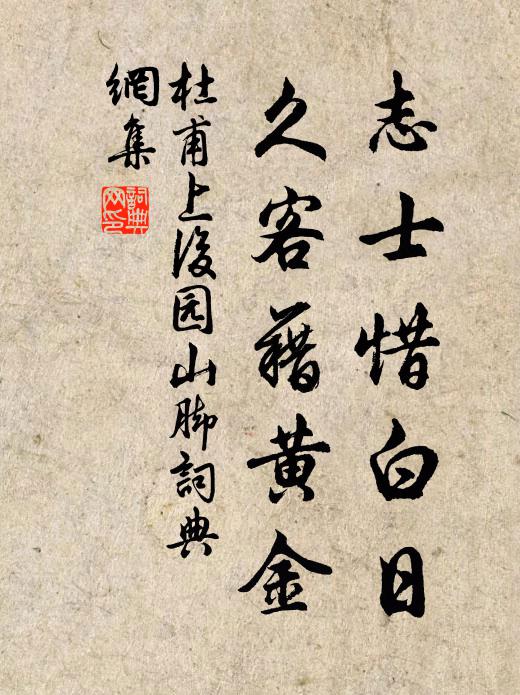 志士惜白日
久客藉黄金
杜甫上後园山脚詞典
網集
詞典
网印